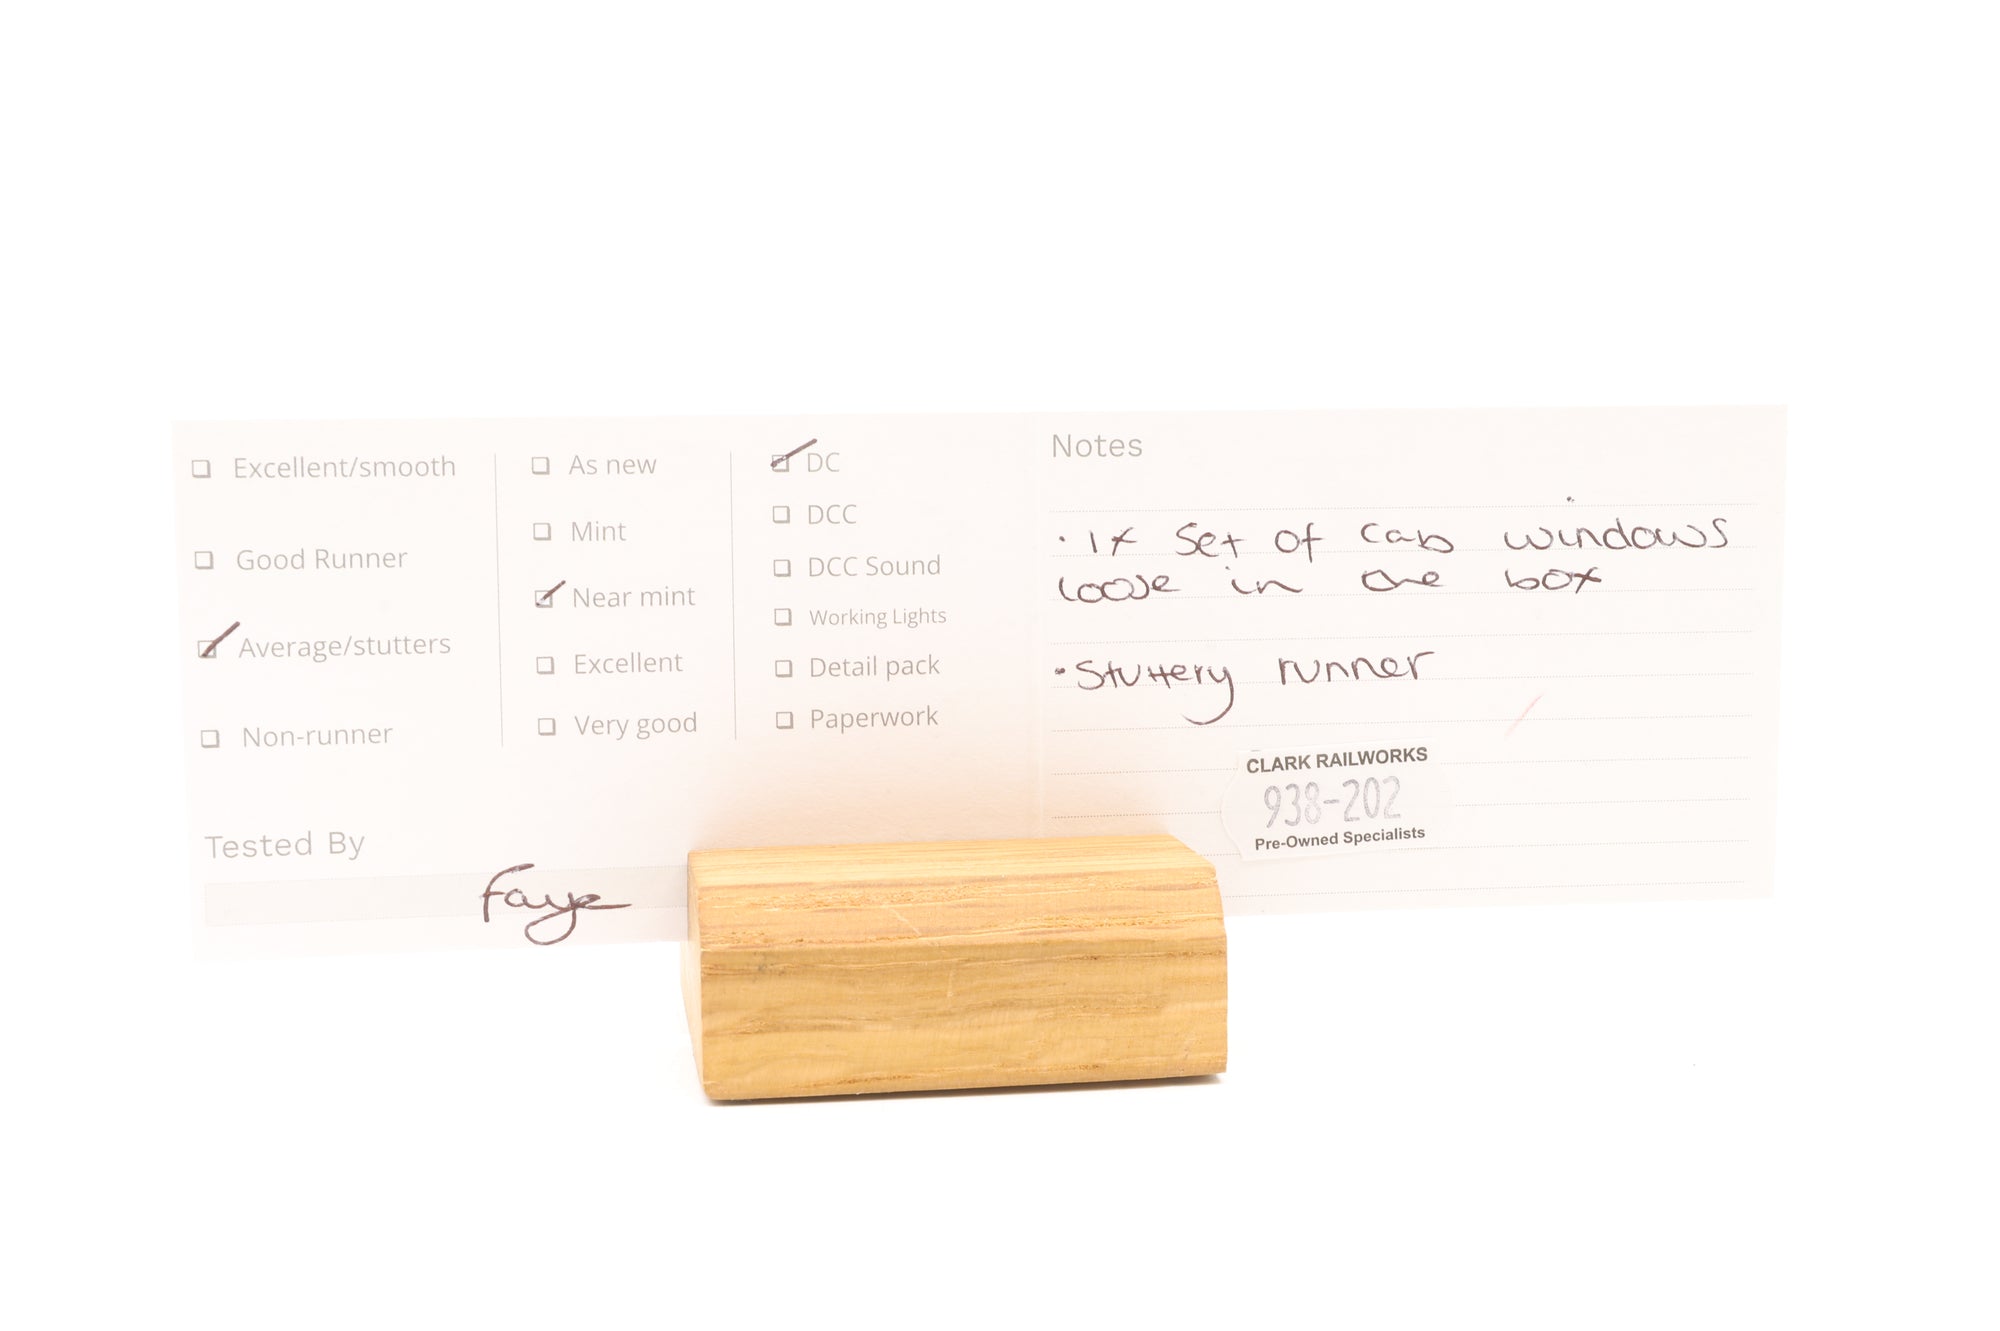 Excellent/smooth
Good Runner
Average/stutters
Non-runner
As new
Mint
Near mint
Excellent
Very good
DC
DCC
DCC Sound
Working Lights
Detail pack
Paperwork
Tested By
Faye
Notes
· 1x Set of cab windows
loose in the box
· Stuttery runner
CLARK RAILWORKS
938-202
Pre-Owned Specialists